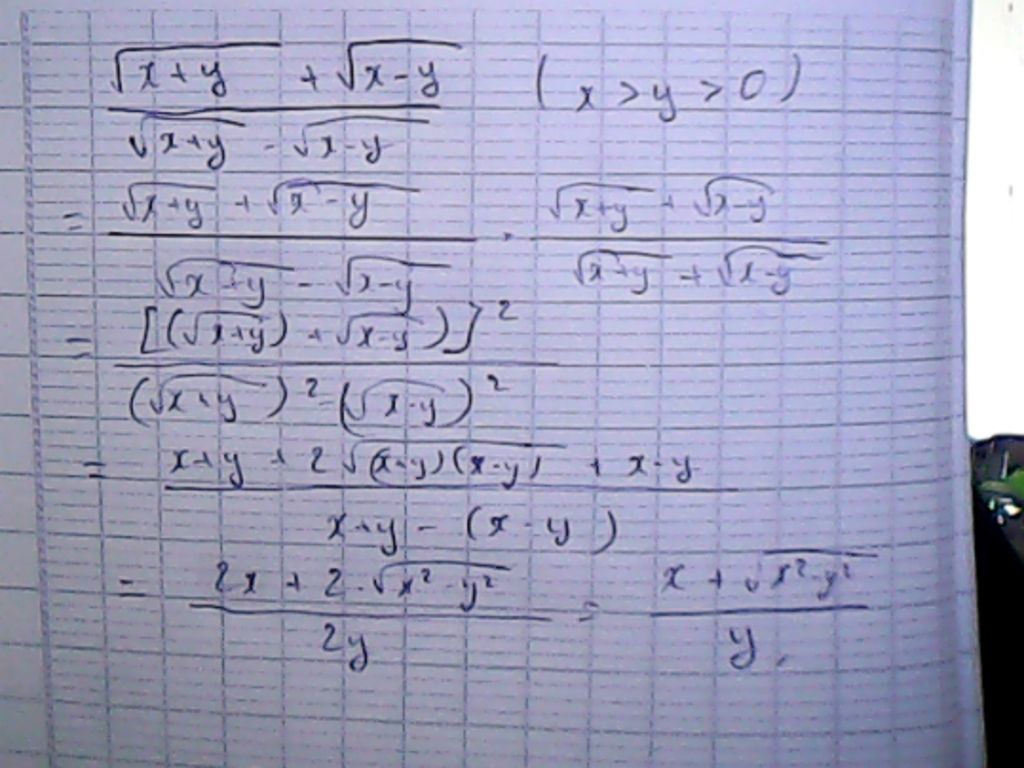 (√(x+y) + √(x-y)) / (√(x+y) - √(x-y)) (x > y > 0)
= (√(x+y) + √(x-y)) / (√(x+y) - √(x-y)) · (√(x+y) + √(x-y)) / (√(x+y) + √(x-y))
= [(√(x+y)) + √(x-y))]² / (√(x+y))² - (√(x-y))²
= (x+y + 2√((x+y)(x-y)) + x-y) / (x+y - (x-y))
= (2x + 2·√(x²-y²)) / 2y = (x + √(x²-y²)) / y.